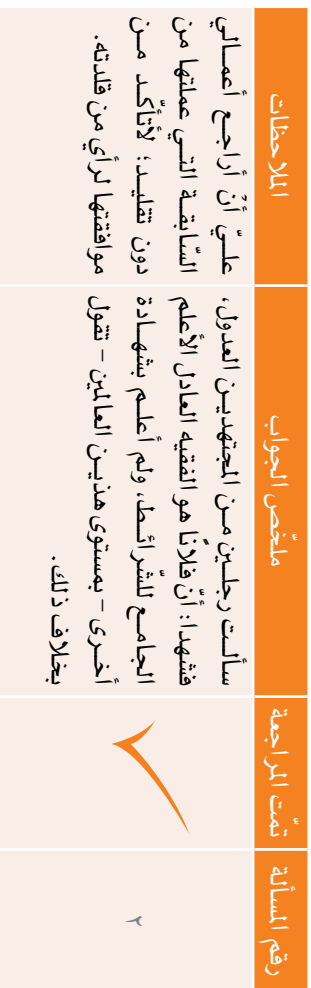 رقم المسألة
تمّت المراجعة
ملخّص الجواب
الملاحظات
٢
سألت رجلين من المجتهدين العدول،
فشهدا: أنّ فلانًا هو الفقيه العادل الأعلم
الجامع للشّرائط، ولم أعلم بشهادة
أخرى - بمستوى هذين العالمين - تقول
بخلاف ذلك.
عليّ أنْ أراجع أعمالي
السّابقة التي عملتها من
دون تقليد؛ لأتأكّد من
موافقتها لرأي من قلدته.